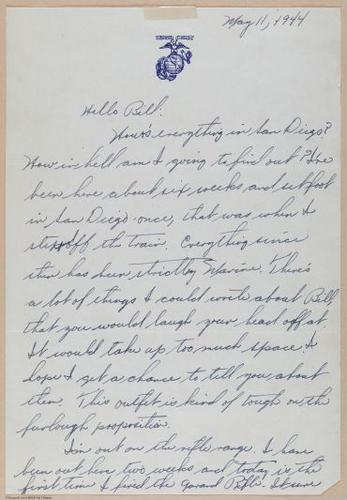 May 11, 1944
Hello Bill:
How's everything in San Diego?
How in hell am I going to find out? I've
been here about six weeks and set foot
in San Diego once, that was when I
step off the train. Everything since
then has been strictly Marine. There's
a lot of things I could write about Bill,
that you would laugh your head off at.
It would take up too much space. I
hope I get a chance to tell you about
them. This outfit is kind of tough on the
furlough proposition.
I'm out on the rifle range. I have
been out here two weeks and today is the
first time I fired the Garand Rifle. It sure